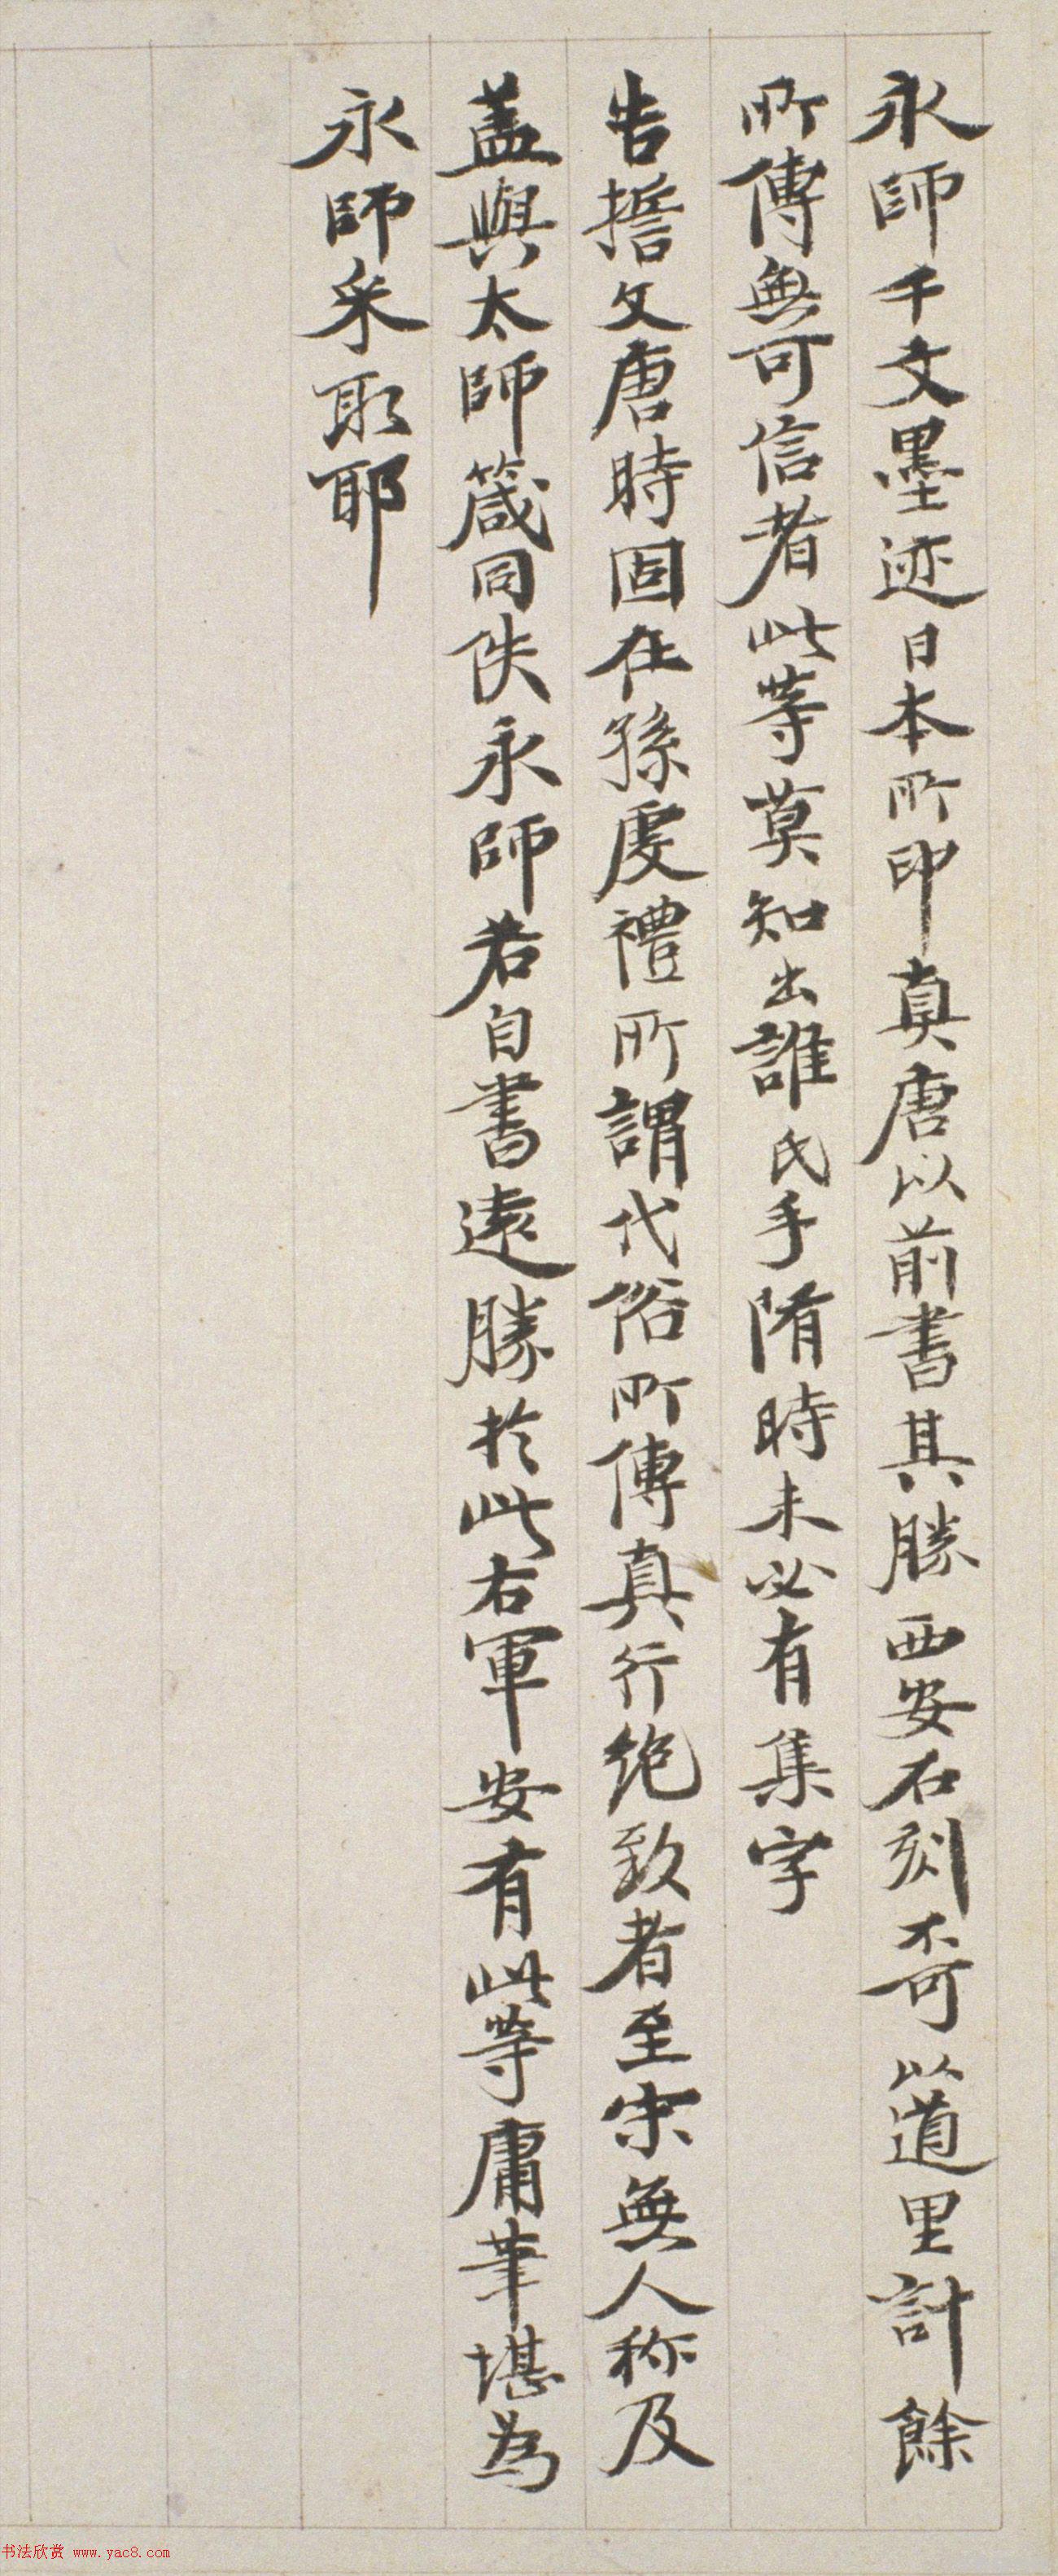 永師千文墨迹日本所印真唐以前書其勝西安石刻不可以道里計餘
所傳無可信者此等莫知出誰氏手隋時未必有集字
告擔文唐時固在孫虔禮所謂代俗所傳真行絕致者至宋無人称及
蓋與太師箴同佚永師若自書遠勝於此右軍安有此等庸筆堪為
永師采取耶
书法欣赏 www.yac8.com